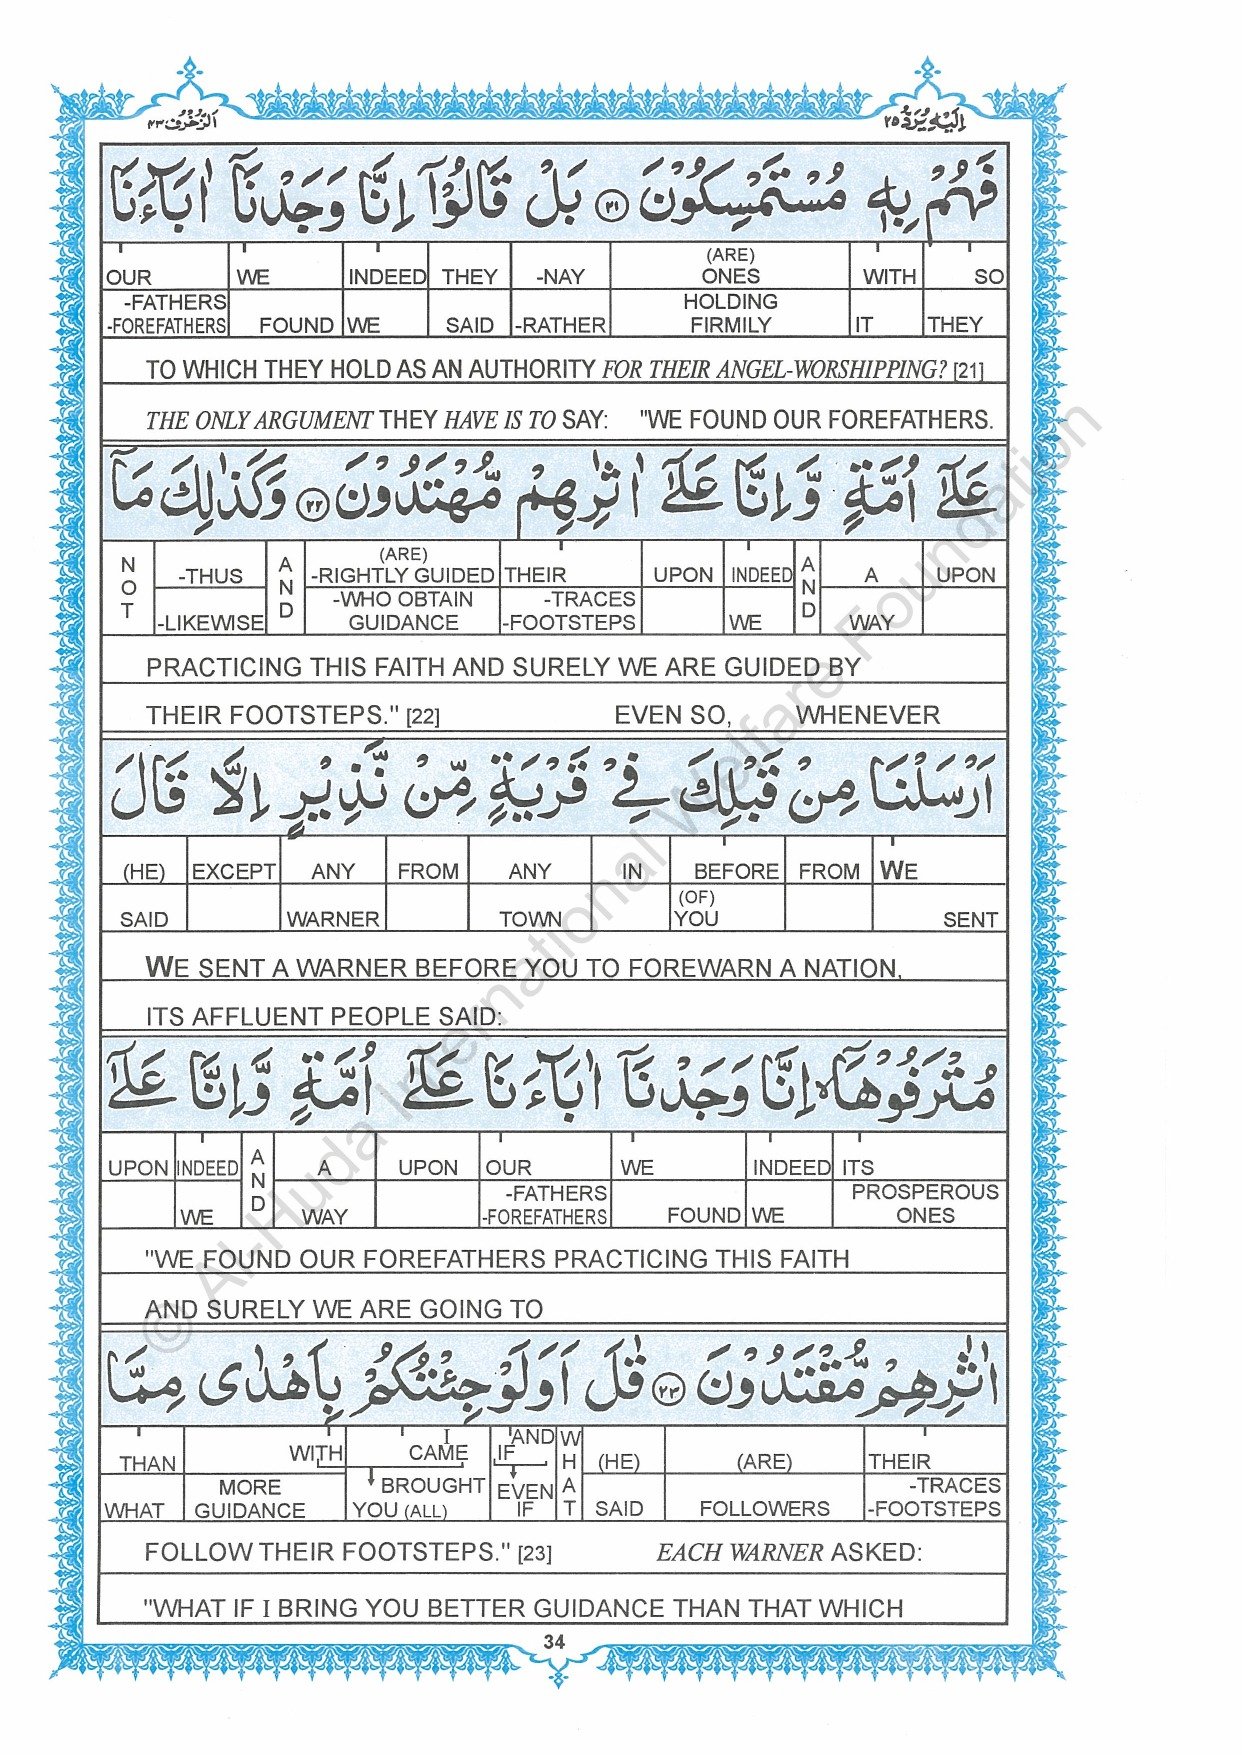 اَلزُّخْرُف ۴۳ اِلَيْهِ يُرَدُّ ۲۵
فَهُمْ بِهٖ مُسْتَمْسِكُوْنَ ۲۱ بَلْ قَالُوْٓا اِنَّا وَجَدْنَآ اٰبَآءَنَا
OUR WE INDEED THEY -NAY (ARE) ONES WITH SO
-FATHERS -FOREFATHERS FOUND WE SAID -RATHER HOLDING FIRMILY IT THEY
TO WHICH THEY HOLD AS AN AUTHORITY FOR THEIR ANGEL-WORSHIPPING? [21]
THE ONLY ARGUMENT THEY HAVE IS TO SAY: "WE FOUND OUR FOREFATHERS.
عَلٰٓى اُمَّةٍ وَّاِنَّا عَلٰٓى اٰثٰرِهِمْ مُّهْتَدُوْنَ ۲۲ وَكَذٰلِكَ مَآ
NOT -THUS AND (ARE) -RIGHTLY GUIDED THEIR UPON INDEED AND A UPON
-LIKEWISE -WHO OBTAIN GUIDANCE -TRACES -FOOTSTEPS WE WAY
PRACTICING THIS FAITH AND SURELY WE ARE GUIDED BY
THEIR FOOTSTEPS." [22] EVEN SO, WHENEVER
اَرْسَلْنَا مِنْ قَبْلِكَ فِيْ قَرْيَةٍ مِّنْ نَّذِيْرٍ اِلَّا قَالَ
(HE) EXCEPT ANY FROM ANY IN BEFORE FROM WE
SAID WARNER TOWN (OF) YOU SENT
WE SENT A WARNER BEFORE YOU TO FOREWARN A NATION,
ITS AFFLUENT PEOPLE SAID:
مُتْرَفُوْهَآ اِنَّا وَجَدْنَآ اٰبَآءَنَا عَلٰٓى اُمَّةٍ وَّاِنَّا عَلٰٓى
UPON INDEED AND A UPON OUR WE INDEED ITS
WE WAY -FATHERS -FOREFATHERS FOUND WE PROSPEROUS ONES
"WE FOUND OUR FOREFATHERS PRACTICING THIS FAITH
AND SURELY WE ARE GOING TO
اٰثٰرِهِمْ مُّقْتَدُوْنَ ۲۳ قٰلَ اَوَلَوْ جِئْتُكُمْ بِاَهْدٰى مِمَّا
THAN WITH I CAME AND IF WHAT (HE) (ARE) THEIR
WHAT MORE GUIDANCE BROUGHT YOU (ALL) EVEN IF SAID FOLLOWERS -TRACES -FOOTSTEPS
FOLLOW THEIR FOOTSTEPS." [23] EACH WARNER ASKED:
"WHAT IF I BRING YOU BETTER GUIDANCE THAN THAT WHICH
34
© Al-Huda International Welfare Foundation